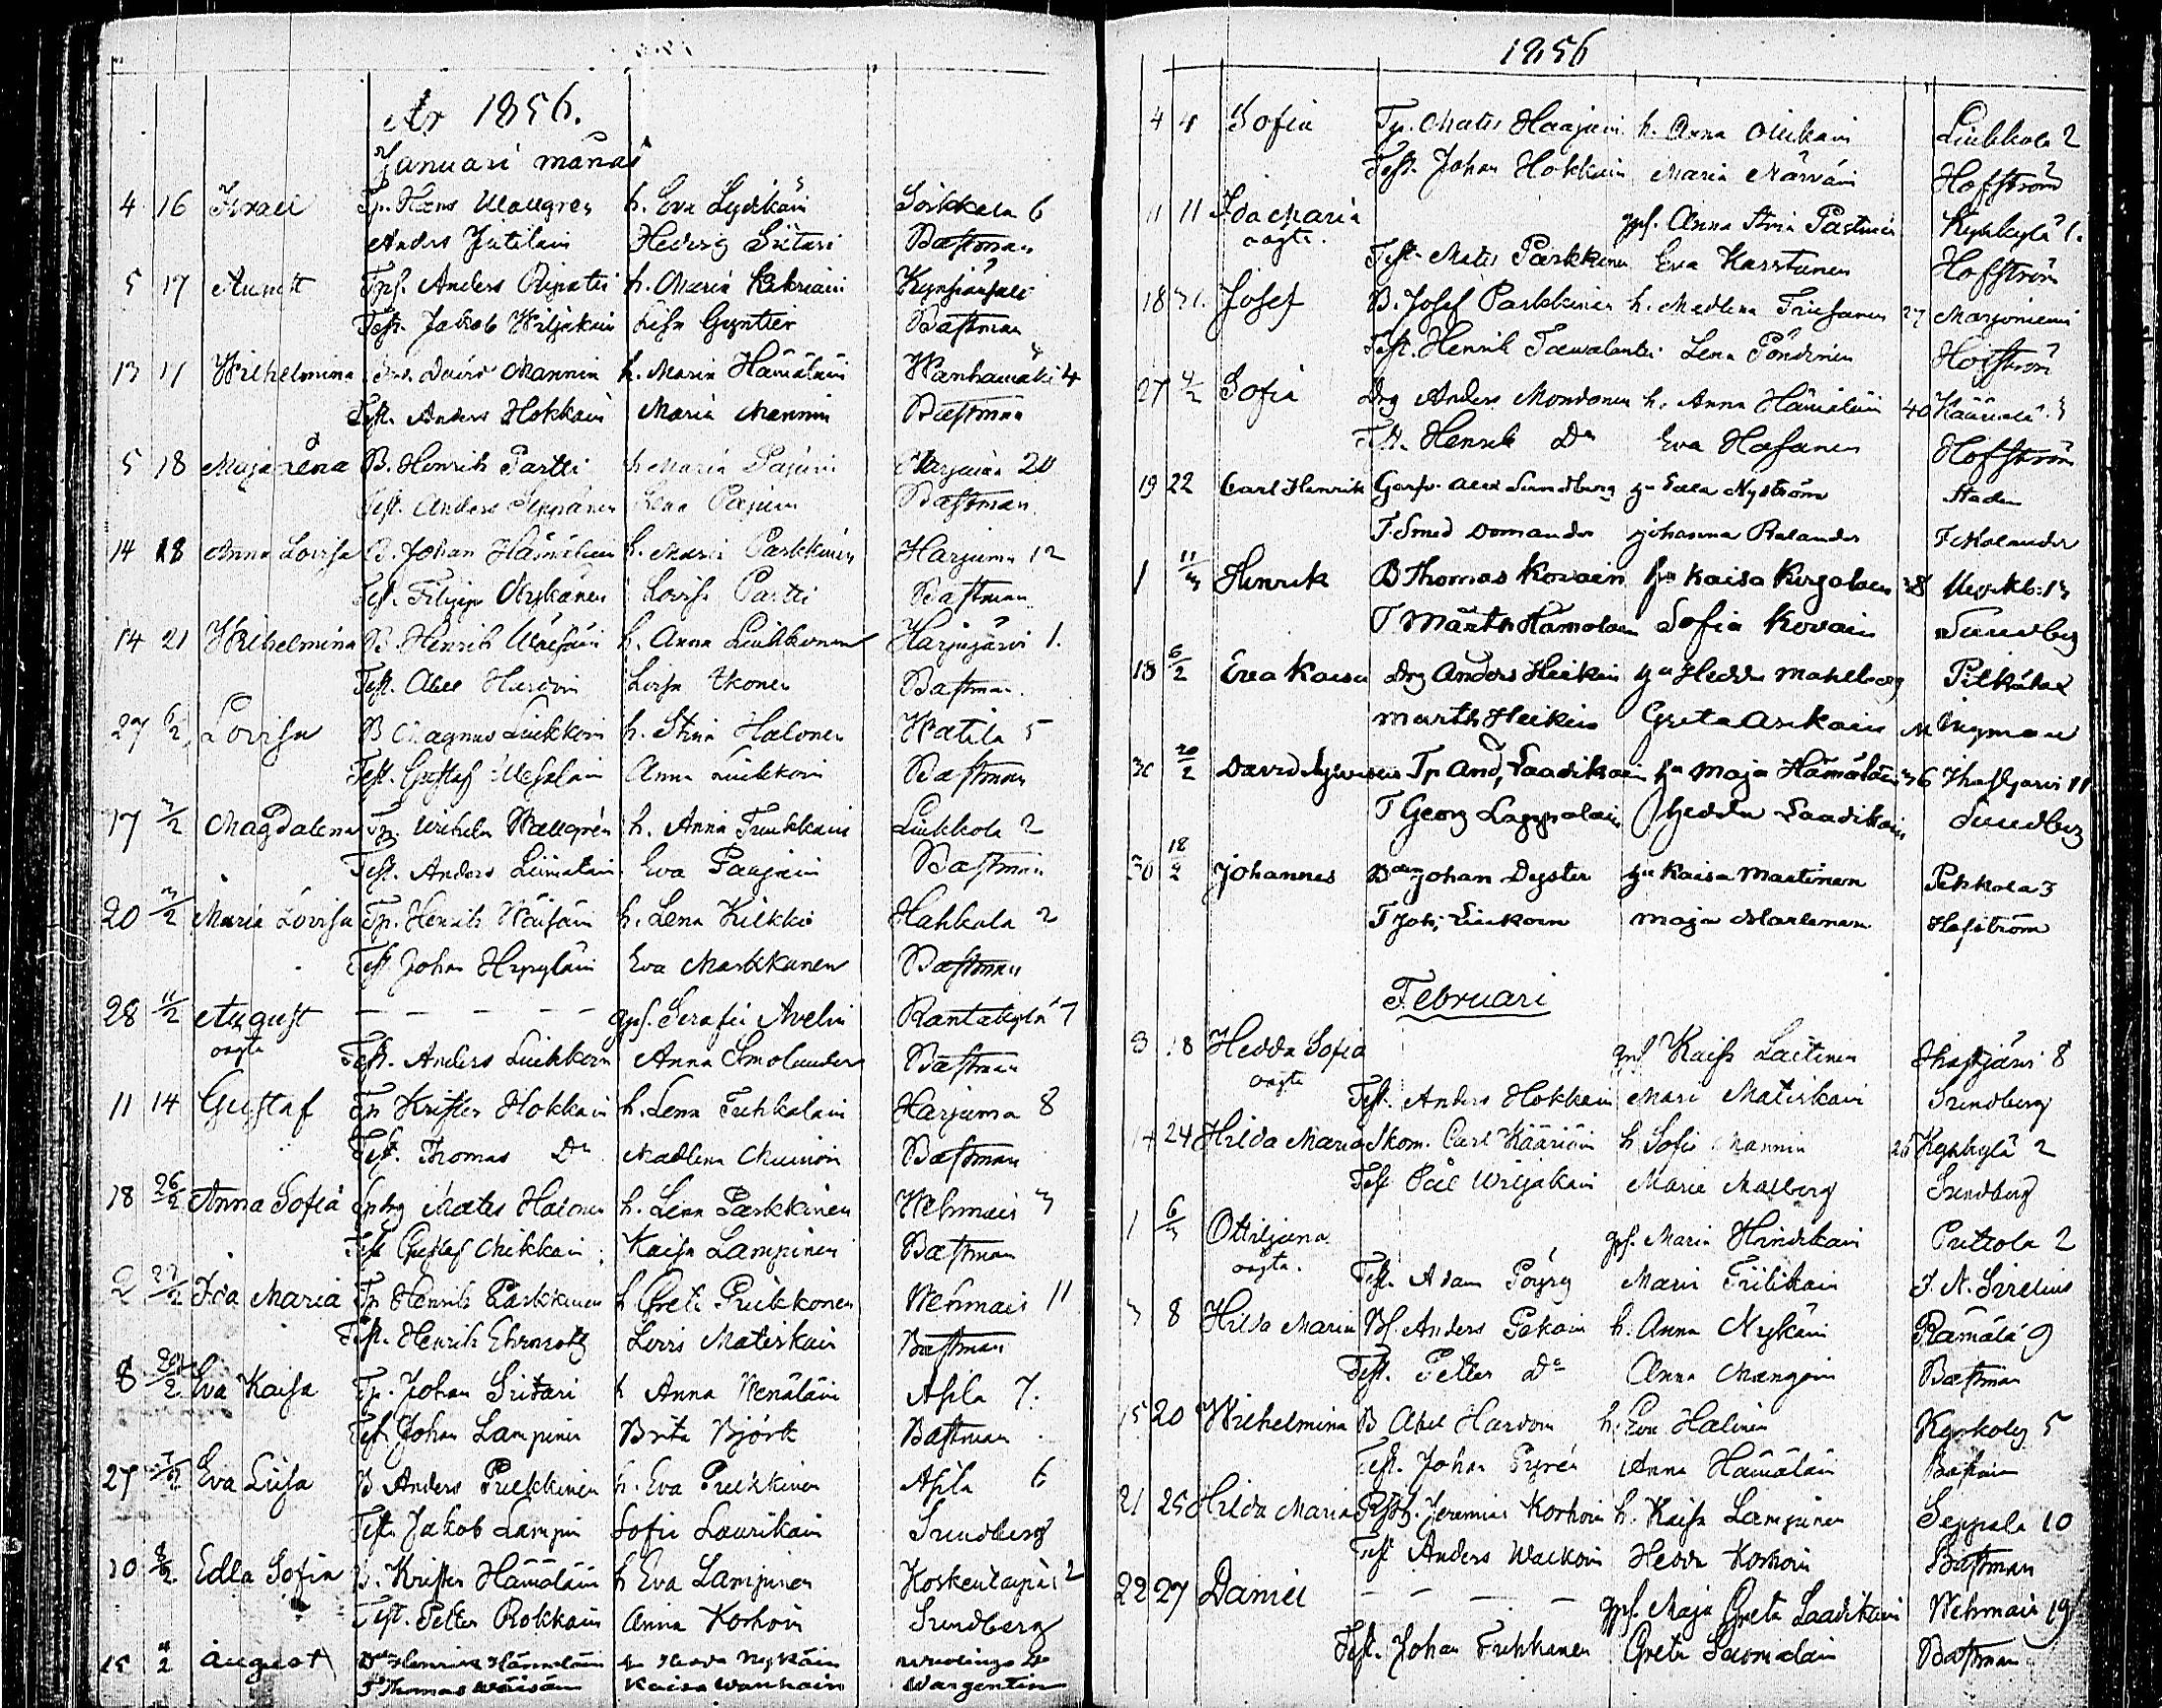 År 1856.
Januari månad
4 16 Israel Tp. Hans Wallgren h. Eva Lydikäin Sorkkala 6
Anders Jutilain Hedvig Sutari Bastman
5 17 August Tpf. Anders h. Maria
Test. Jakob Wiljakain Lisa Gynther Bastman
13 17 Wilhelmina David Mannin h. Maria Hämäläin Wanhamäki 4
Test. Anders Hokkain Maria Mannin Bastman
5 18 Maja Lena B. Henrik Partti h. Maria Pajuin Harjuma 20
Test. Anders Seppänen Lena Pajuin Bastman
14 18 Anna Lovisa B. Johan Hämäläin h. Maria Parkkinen Harjuma 12
Test. Filippus Nykänen Lovisa Partti Bastman
14 21 Wilhelmina B. Henrik Wäisäin h. Anna Liukkonen Harjujärvi 1.
Test. Abel Hardoin Lovisa Ikonen Bastman
27 6/2 Lovisa B Magnus Liukkoin h. Stina Halonen Watila 5
Test. Gustaf Anna Liukkoin Bastman
17 3/2 Magdalena Tp. Wilhelm Wallgrén h. Anna Tuukkain Liukkola 2
Test. Anders Liimatain Eva Paajain Bastman
20 3/2 Maria Lovisa Tp. Henrik Wäisäin h. Lena Kilkki Hahkala 2
Test Johan Hyyryläin Eva Markkanen Bastman
28 11/2 August — — — — — gpf. Serafia Avelin Rantakylä 7
oägta Test. Anders Liukkoin Anna Smolander Bastman
11 14 Gustaf Tp Krister Hokkain h. Lena Tuhkalain Harjuma 8
Test. Thomas Do Madlena Muinoin Bastman
18 26/2 Anna Sofia Mats Haloin h. Lena Parkkinen Wehmais 3
Test Gustaf Mikkain Kaisa Lampinen Bastman
2 27/2 Ida Maria Tp Henrik Parkkinen h Greta Pulkkonen Wehmais 11
Test. Henrik Ehrnrooth Lovis Matiskain Bastman
8 29/2 Eva Kaisa Tp. Johan Sutari h Anna Wenäläin Asila 7.
Test. Johan Lampinen Brita Björk Bastman
27 Eva Lisa B Anders Pulkkinen h. Eva Pulkkinen Asila 6
Test. Jakob Lampin Sofia Laurikain Sundberg
10 Edla Sofia B. Krister Hämäläin h Eva Lampinen Koskentaipal 2
Test. Petter Rokkain Anna Korhoin Sundberg
15 August Henrik Hämäläin Hedda Nykäin
T Thomas Wäisäin Kaisa Wanhain Wargentin
1856
4 4 Sofia Tp. Mats Haajain h. Anna Mikain Liukkola 2
Test. Johan Hokkain Maria Närväin Hofström
11 11 Ida Maria gpf. Anna Stina Pastinen Kyrkbylä 1.
oägta. Test. Mats Parkkinen Eva Karstunen Hofström
18 31. Josef B. Josef Parkkinen h. Madlena 27 Marjoniemi
Test. Henrik Tawalantti Lena Pöndinen Hofström
27 4/2 Sofia Drg Anders Mondonen h. Anna Hämäläin 40 3
Test. Henrik Do Eva Hasanen Hofström
19 22 Carl Henrik Garfv. Alex Sundberg Edla Nyström Staden
T. Smed Domander Johanna Relander F. Molander
1 11/3 Henrik B Thomas Kovain hu Kaisa Kerjalain 38
T Märta Hämälain Sofia Kovain Sundberg
18 6/2 Eva Kaisa Drg Anders Heikin hu Hedda Mahlberg Pitkälax
Märth Heikin Greta Asikain Nyman
30 20/2 David Tp And, Laadikain hu Maja Hämäläin 36 Ihastjärvi 11
T Georg Lappalain Hedda Laadikain Sundberg
30 18/2 Johannes Johan Dyster hu Kaisa Martinen Pekkola 3
T Joh, Liukoin Maja Martinen Hofström
Februari
3 18 Hedda Sofia gpf Kaisa Laitinen Ihastjärvi 8
oägta Test. Anders Hokkain Mari Matiskain Sundberg
14 24 Hilda Maria Skom. Carl Kääriäin h Sofia Mannin 25 Kyrkbylä 2
Test Påel Wiljakain Maria Malberg Sundberg
1 6/3 Ottiljana gpf. Maria Hindikain Pettola 2
oägta. Test. Adam Pöyry Maria Tiilikain J. N. Sirelius
3 8 Hilda Maria Bf. Anders Pakain h. Anna Nykäin Rämälä 9
Test. Petter Do Anna Mangoin Bastman
15 20 Wilhelmina B Abel Hardoin h. Eva Halinen Kyrkoby 5
Test. Johan Pyrén Anna Hämäläin Bastman
21 25 Hilda Maria Jeremias Korhoin h. Kaisa Lampinen Seppälä 10
Test Anders Walkoin Hedda Korhoin Bastman
22 27 Daniel — — — — gpf. Maja Greta Laadikain Wehmais 19
Test. Johan Tuhkanen Greta Suomalain Bastman